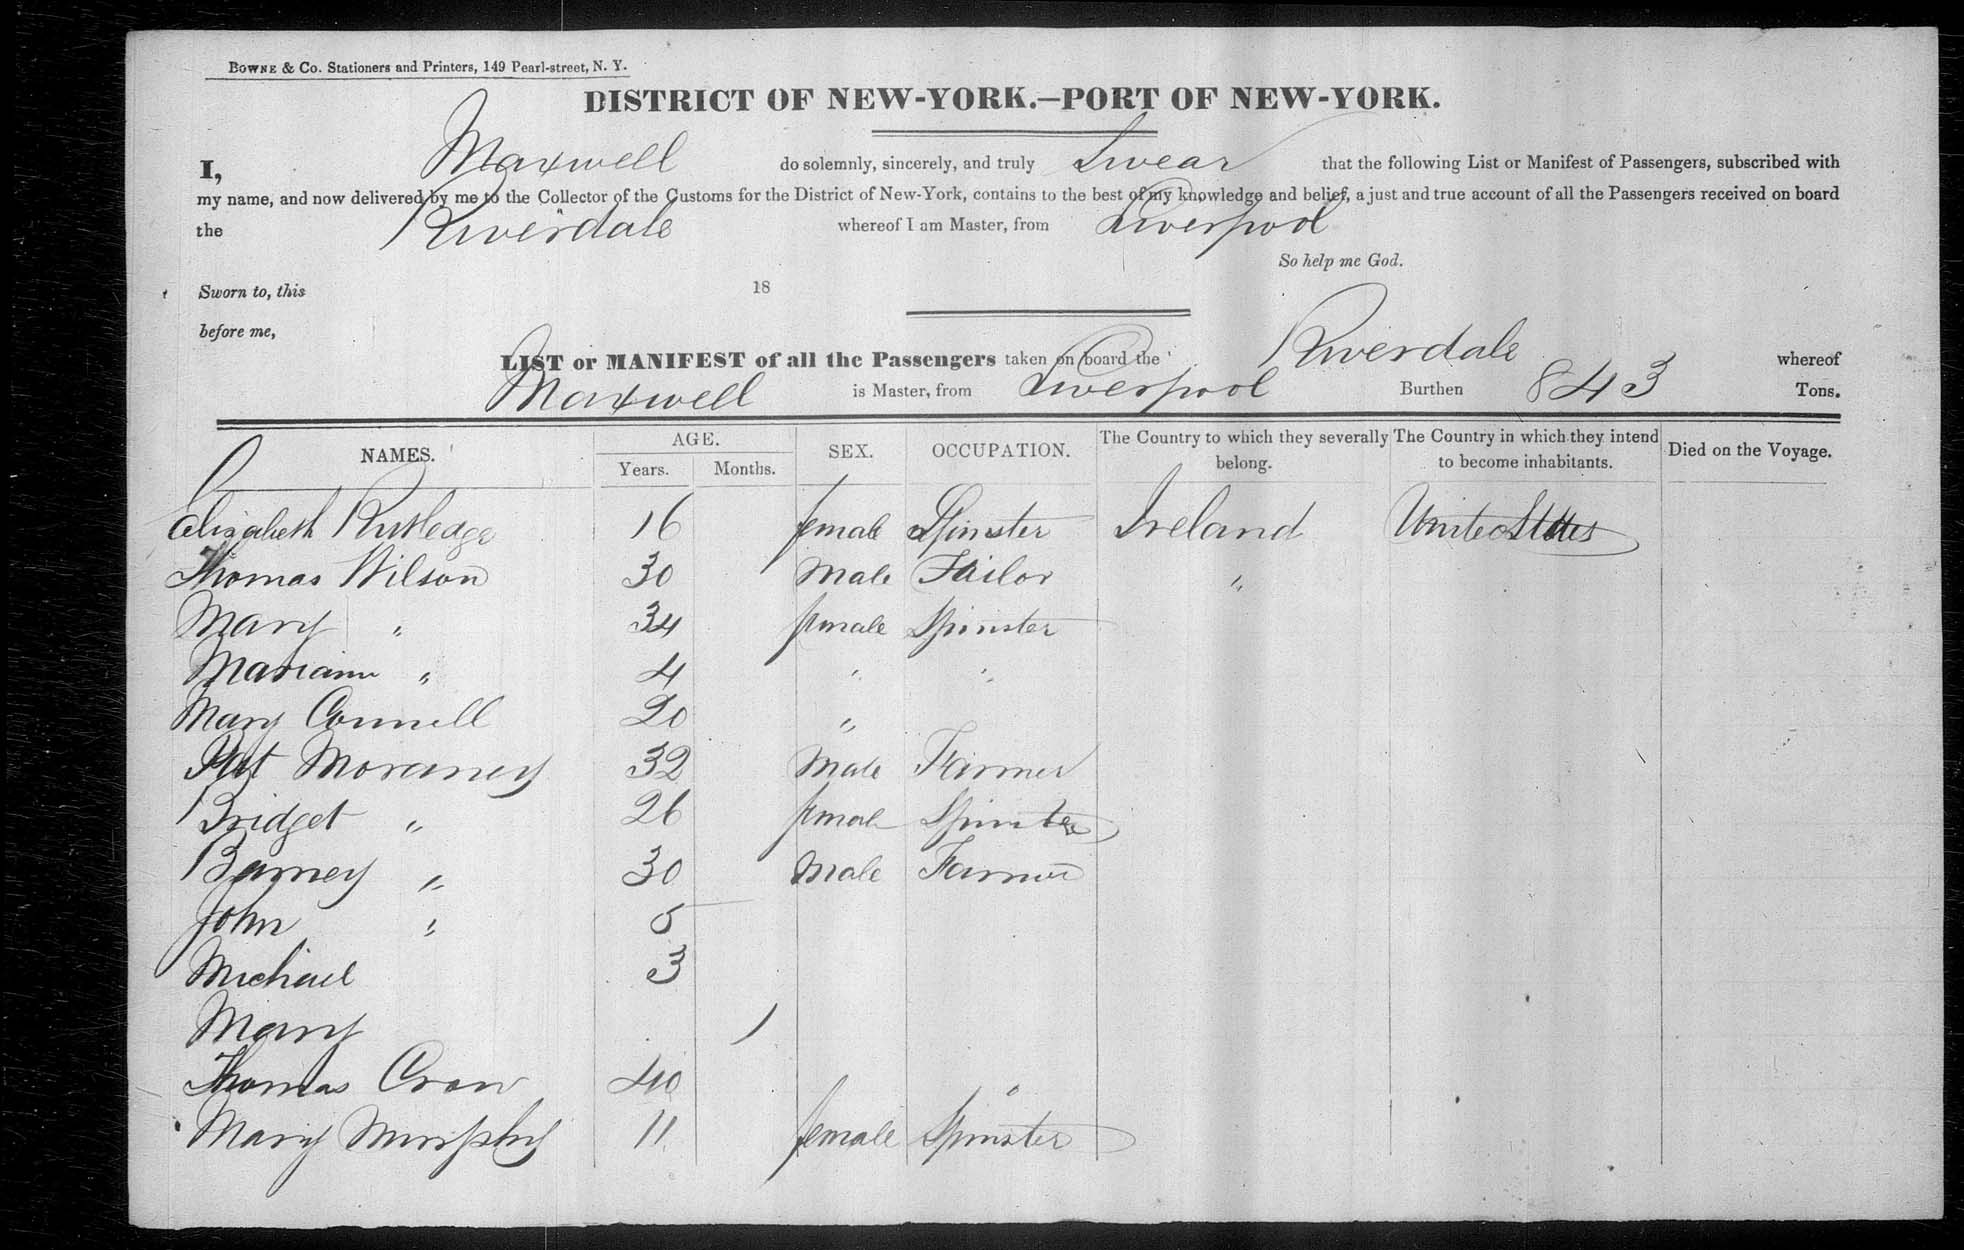 BOWNE & CO. Stationers and Printers, 149 Pearl-street, N. Y.
DISTRICT OF NEW-YORK.—PORT OF NEW-YORK.
I, Maxwell do solemnly, sincerely, and truly Swear that the following List or Manifest of Passengers, subscribed with
my name, and now delivered by me to the Collector of the Customs for the District of New-York, contains to the best of my knowledge and belief, a just and true account of all the Passengers received on board
the Riverdale whereof I am Master, from Liverpool
So help me God.
Sworn to, this 18
before me,
LIST or MANIFEST of all the Passengers taken on board the Riverdale whereof
Maxwell is Master, from Liverpool Burthen 843 Tons.
NAMES. AGE. Years. Months. SEX. OCCUPATION. The Country to which they severally belong. The Country in which they intend to become inhabitants. Died on the Voyage.
Elisabeth Rutledge 16 female Spinster Ireland United States
Thomas Wilson 30 Male Tailor "
Mary " 34 female Spinster
Mariann " 4 " "
Mary Connell 20 "
Pat Moraney 32 Male Farmer
Bridget " 26 female Spinster
Barney " 30 Male Farmer
John " 5
Michael 3
Mary 1
Thomas Crow 40 "
Mary Murphy 11 female Spinster